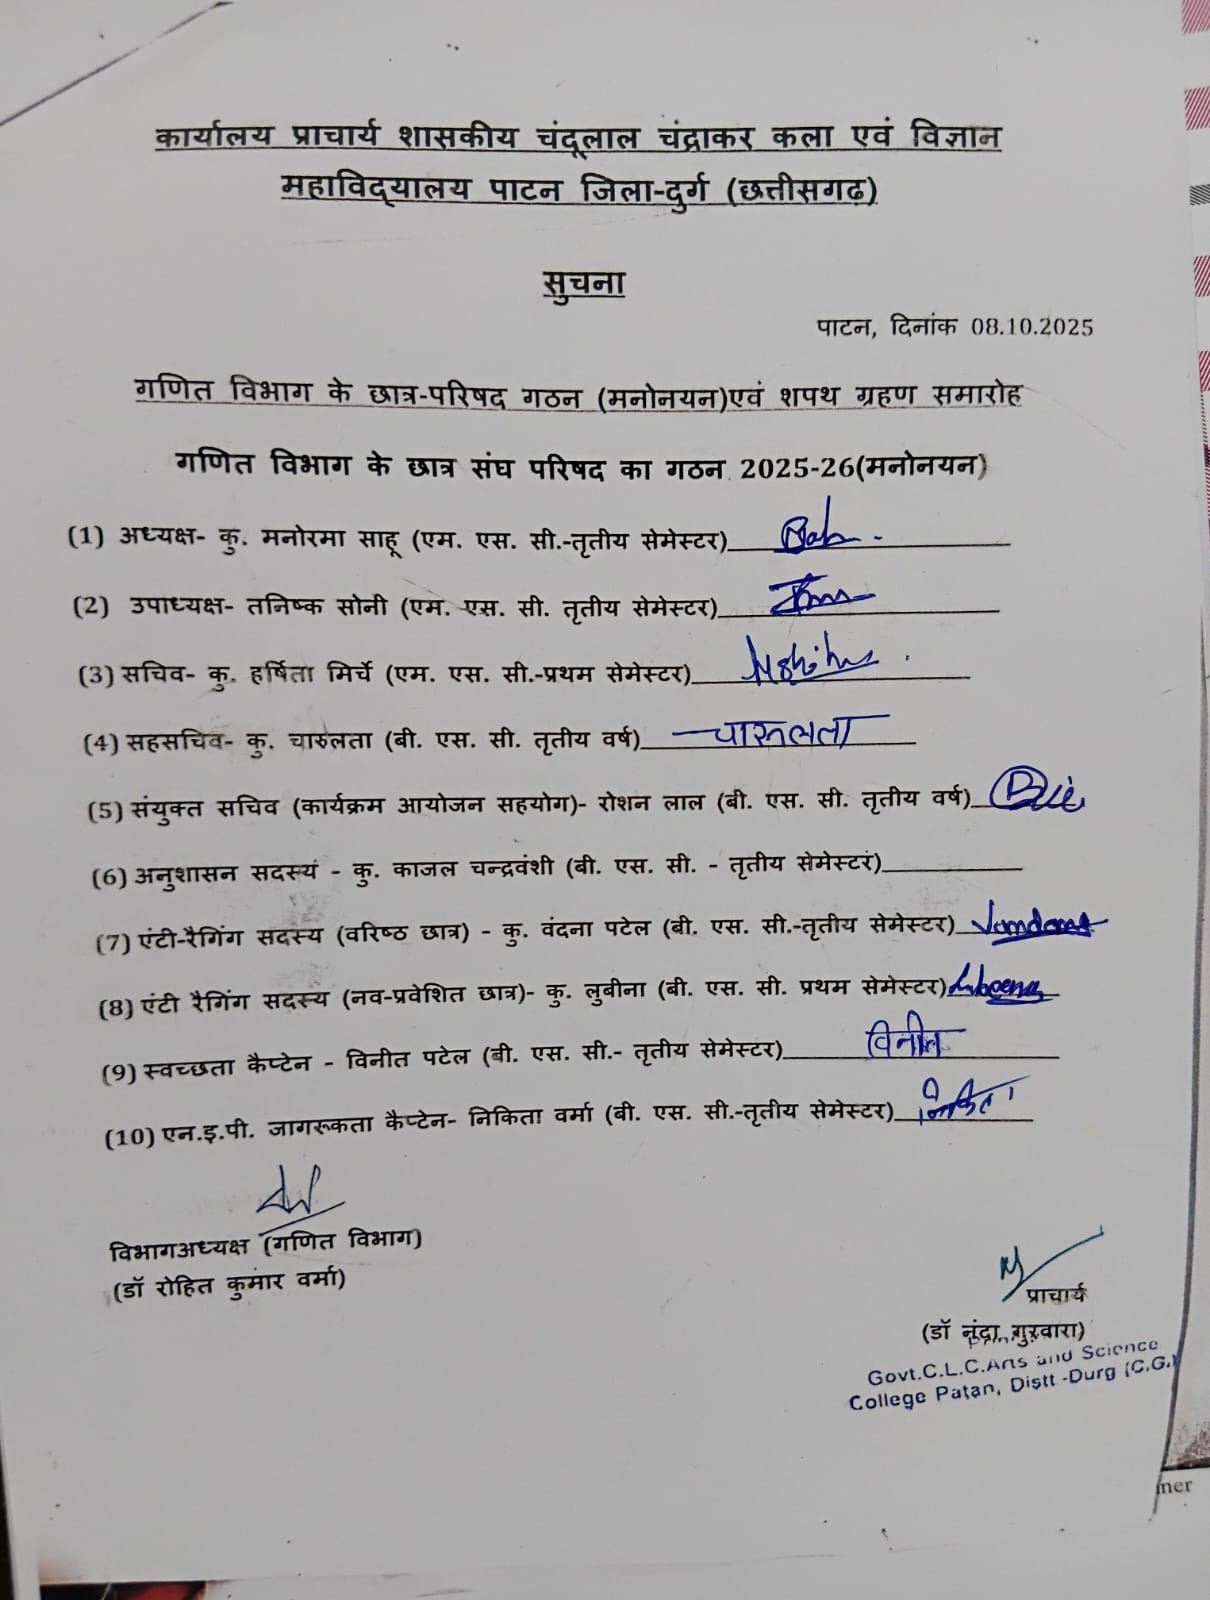 कार्यालय प्राचार्य शासकीय चंदूलाल चंद्राकर कला एवं विज्ञान
महाविद्यालय पाटन जिला-दुर्ग (छत्तीसगढ़)
सुचना
पाटन, दिनांक 08.10.2025
गणित विभाग के छात्र-परिषद गठन (मनोनयन)एवं शपथ ग्रहण समारोह
गणित विभाग के छात्र संघ परिषद का गठन 2025-26(मनोनयन)
(1) अध्यक्ष- कु. मनोरमा साहू (एम. एस. सी.-तृतीय सेमेस्टर)
(2) उपाध्यक्ष- तनिष्क सोनी (एम. एस. सी. तृतीय सेमेस्टर)
(3) सचिव- कु. हर्षिता मिर्चे (एम. एस. सी.-प्रथम सेमेस्टर)
(4) सहसचिव- कु. चारुलता (बी. एस. सी. तृतीय वर्ष) चारूलता
(5) संयुक्त सचिव (कार्यक्रम आयोजन सहयोग)- रोशन लाल (बी. एस. सी. तृतीय वर्ष)
(6) अनुशासन सदस्य - कु. काजल चन्द्रवंशी (बी. एस. सी. - तृतीय सेमेस्टर)
(7) एंटी-रैगिंग सदस्य (वरिष्ठ छात्र) - कु. वंदना पटेल (बी. एस. सी.-तृतीय सेमेस्टर)
(8) एंटी रैगिंग सदस्य (नव-प्रवेशित छात्र)- कु. लुबीना (बी. एस. सी. प्रथम सेमेस्टर)
(9) स्वच्छता कैप्टेन - विनीत पटेल (बी. एस. सी.- तृतीय सेमेस्टर) विनीत
(10) एन.इ.पी. जागरूकता कैप्टेन- निकिता वर्मा (बी. एस. सी.-तृतीय सेमेस्टर) निकिता
विभागअध्यक्ष (गणित विभाग)
(डॉ रोहित कुमार वर्मा)
प्राचार्य
(डॉ नंदा गुरवारा)
Govt.C.L.C.Arts and Science
College Patan, Distt-Durg (C.G.)
mer